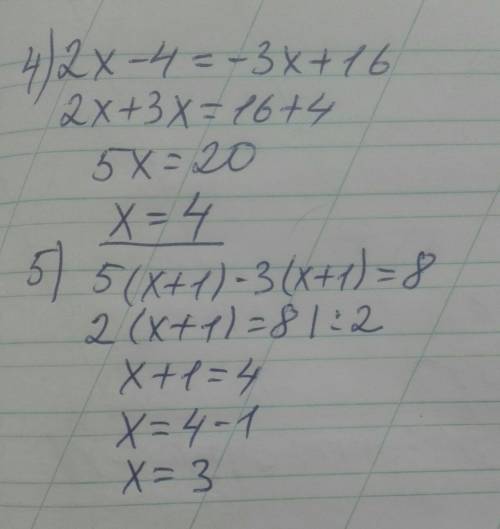 4) 2x-4=-3x+16
2x+3x=16+4
5x=20
x=4
5) 5(x+1)-3(x+1)=8
2(x+1)=8 |:2
x+1=4
x=4-1
x=3